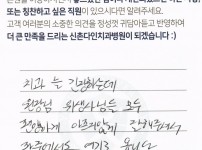 또는 칭찬하고 싶은 직원이 있으시다면 알려주세요.
고객 여러분의 소중한 의견을 정성껏 귀담아듣고 반영하여
더 큰 만족을 드리는 신촌다인치과병원이 되겠습니다 :)
치과 늘 긴장하는데
원장님 위생사님들 모두
친절하게 아프지않게 잘해주셔서